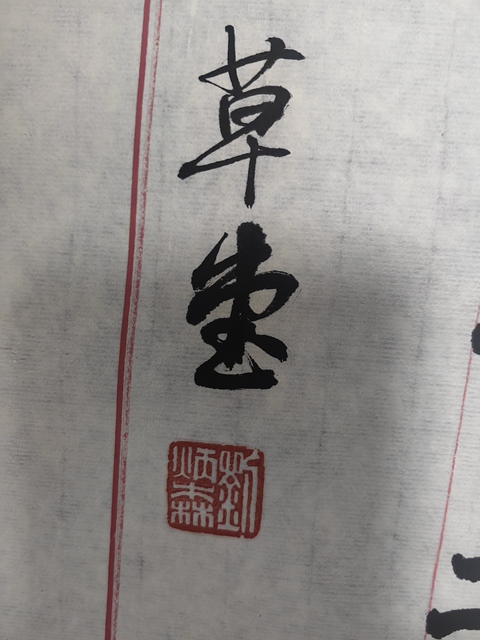 草堂
劉炳森